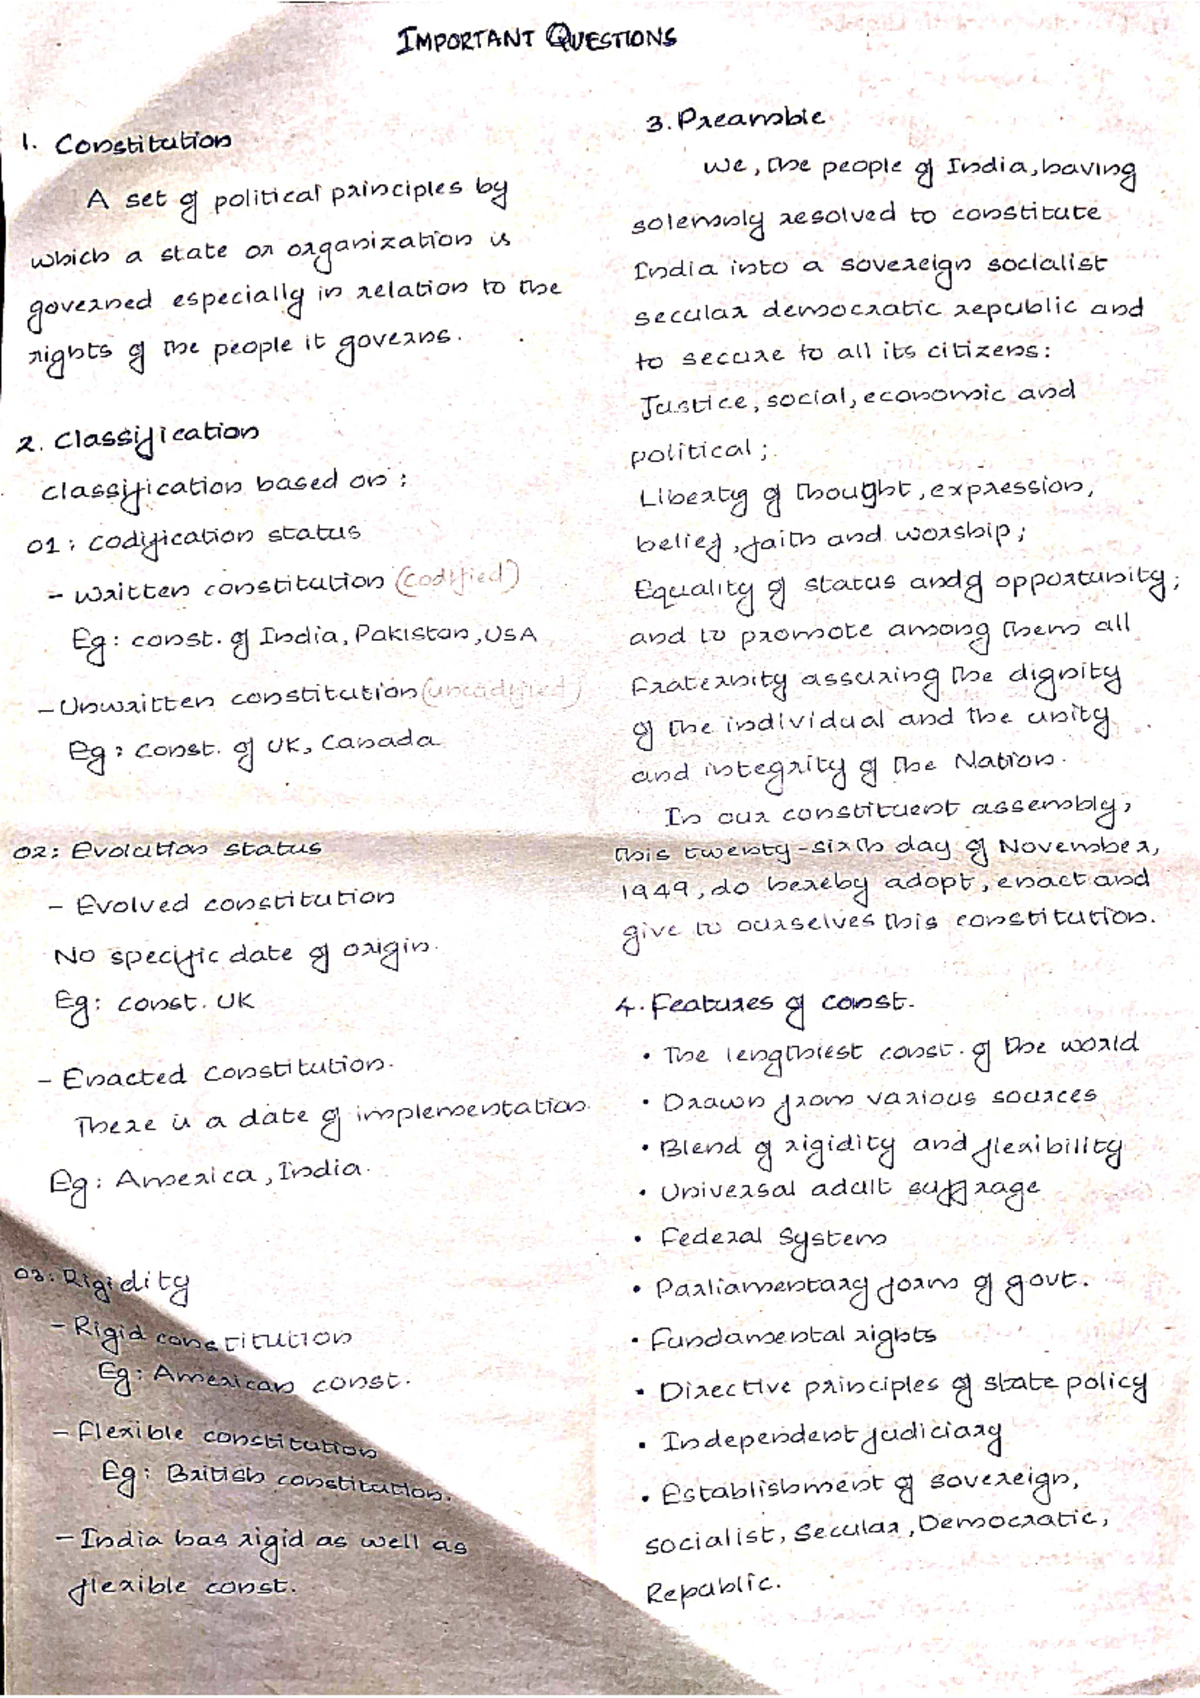 IMPORTANT QUESTIONS
1. Constitution
A set of political principles by
which a state or organization is
governed especially in relation to the
rights of the people it governs.
2. Classification
classification based on :
01 : codification status
- written constitution (codified)
Eg : const. of India, Pakistan, USA
- Unwritten constitution (uncodified)
Eg : const. of UK, Canada
02: Evolution status
- Evolved constitution
No specific date of origin.
Eg: const. UK
- Enacted constitution.
There is a date of implementation.
Eg: America, India.
03: Rigidity
- Rigid constitution
Eg: American const.
- Flexible constitution
Eg: British constitution.
- India has rigid as well as
flexible const.
3. Preamble
We, the people of India, having
solemnly resolved to constitute
India into a sovereign socialist
secular democratic republic and
to secure to all its citizens:
Justice, social, economic and
political;
Liberty of thought, expression,
belief, faith and worship;
Equality of status and of opportunity;
and to promote among them all
Fraternity assuring the dignity
of the individual and the unity
and integrity of the Nation.
In our constituent assembly,
this twenty-sixth day of November,
1949, do hereby adopt, enact and
give to ourselves this constitution.
4. Features of const.
• The lengthiest const. of the world
• Drawn from various sources
• Blend of rigidity and flexibility
• Universal adult suffrage
• Federal System
• Parliamentary form of govt.
• Fundamental rights
• Directive principles of state policy
• Independent judiciary
• Establishment of sovereign,
socialist, Secular, Democratic,
Republic.